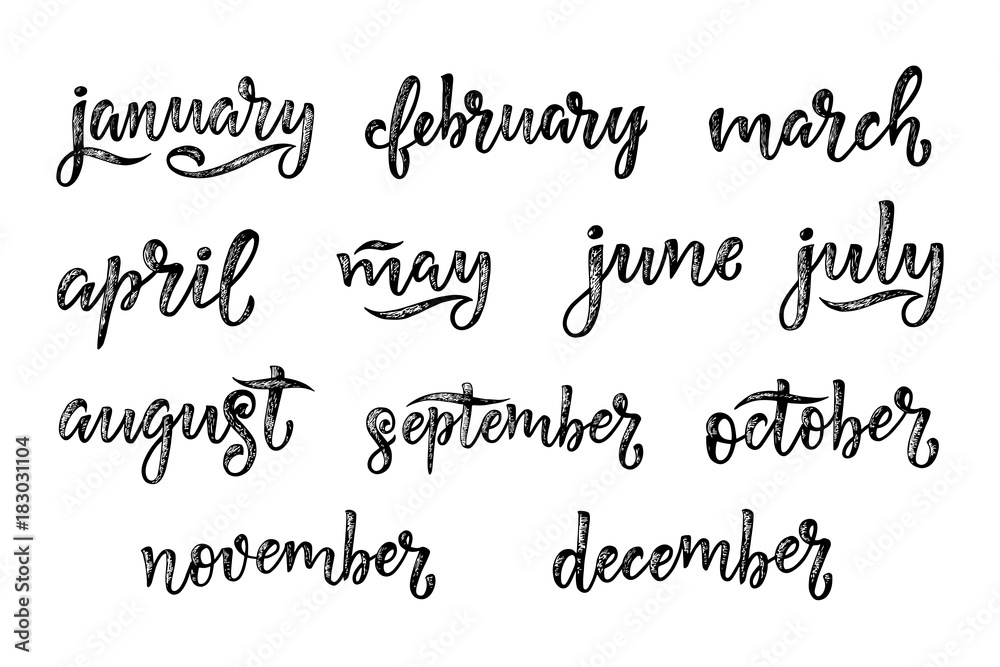 january february march
april may june july
august september october
november december
Adobe Stock | #183031104